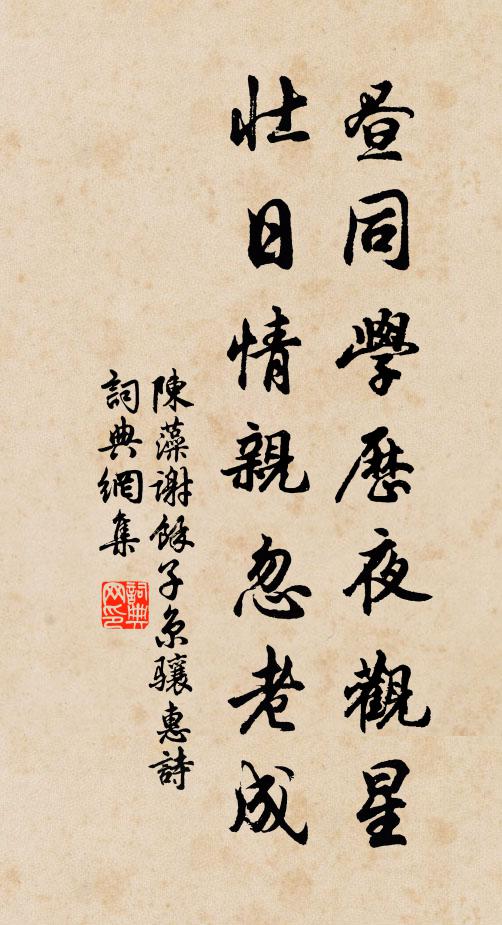 昼同學歷夜觀星
壯日情親忽老成
陳藻謝餘子京驤惠詩
詞典網集
詞典网印